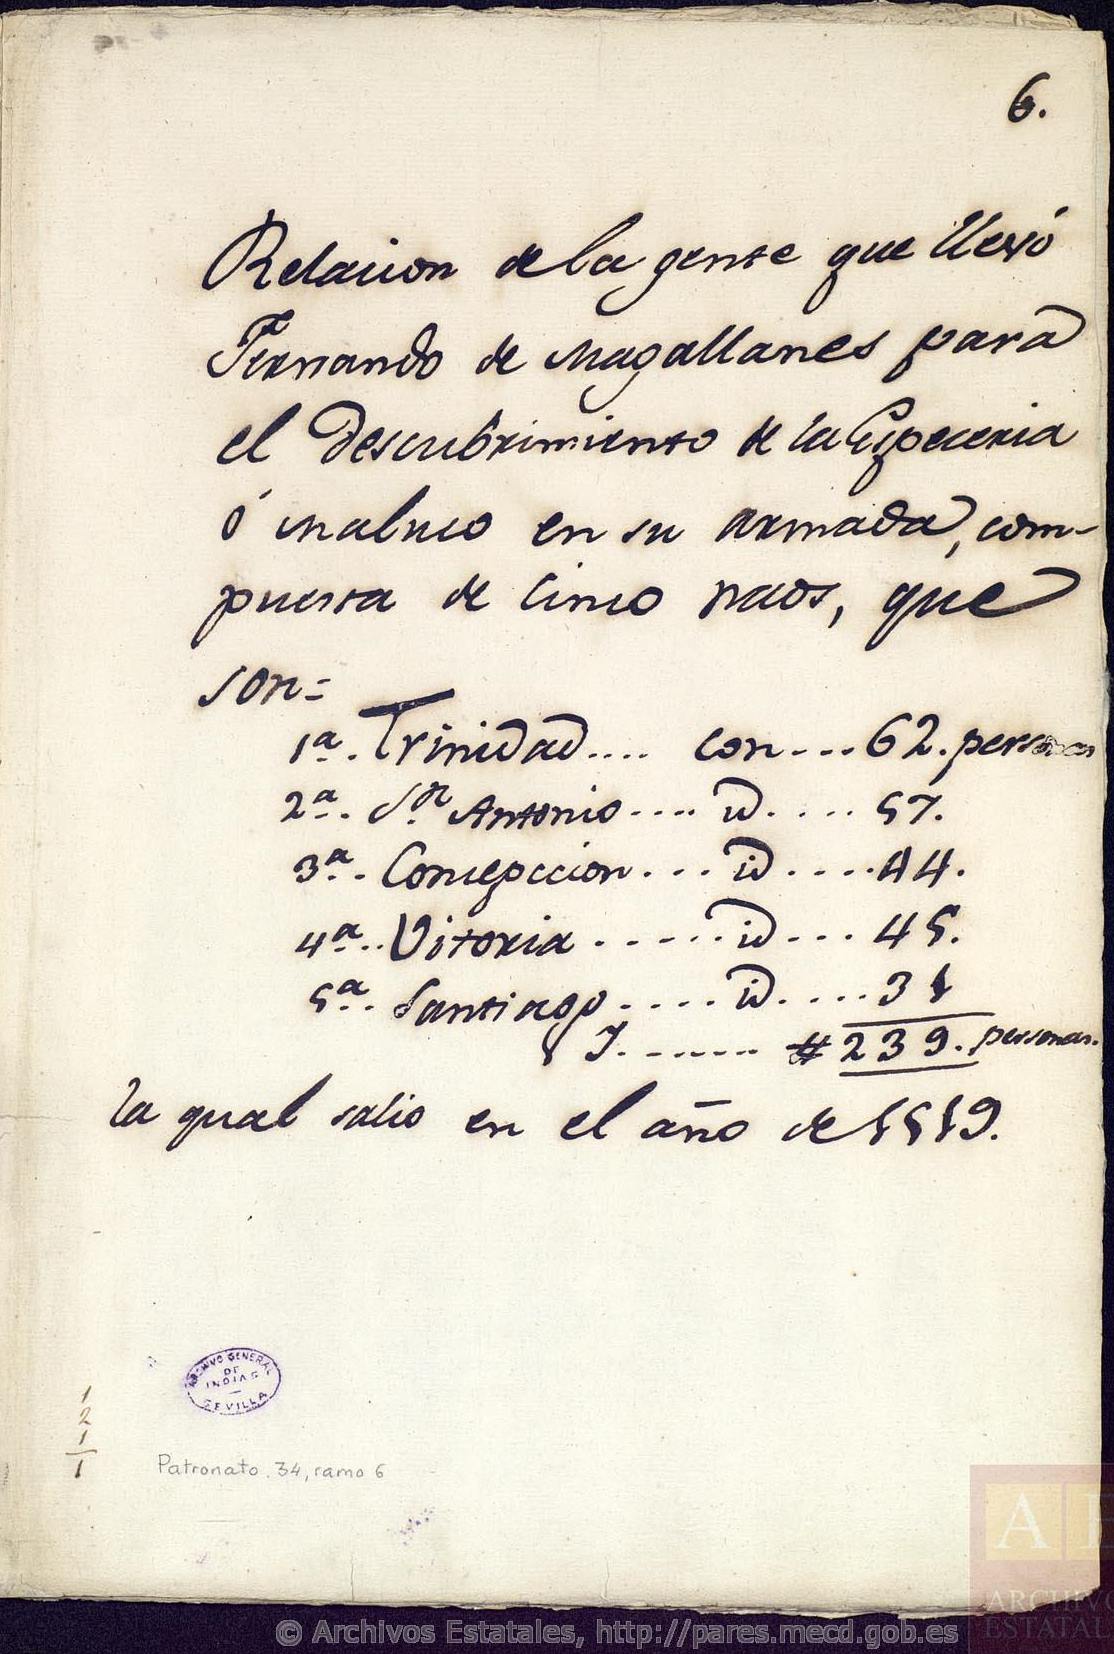 6.
Relacion de la gente que llevó
Fernando de Magallanes para
el descubrimiento de la Especeria
ó maluco en su armada, com-
puesta de cinco naos, que
son=
1ª. Trinidad.... con... 62. personas
2ª. Sⁿ Antonio.... id.... 57.
3ª. Concepccion... id.... 44.
4ª.. Vitoria...... id... 45.
5ª. Santiago.... id.... 31
T....... # 239. personas.
la qual salio en el año de 1519.
ARCHIVO GENERAL
DE
INDIAS
SEVILLA
1
2
1
1
Patronato. 34, ramo 6
AE
ARCHIVO
ESTATAL
© Archivos Estatales, http://pares.mecd.gob.es